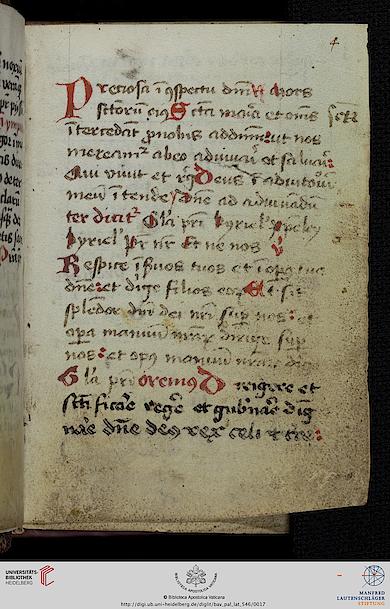 4
Preciosa ī ɔspectu dnī v̄ mors
sctorū eius Scta maria et om̄s sctī
ītercedāt pro nobis ad dnm̄ ut nos
mereamur ab eo adiuvari et saluari
Qui vivit et rg̃ Deus ī adiutoriū
meū ītende Dn̄e ad adiuvandū
ter dicitr Glīa prī kyriel' xp̄el'
kyriel' Pr̄ nr̄ Et ne nos
Respice ī ſuos tuos et ī opa tua
dn̄e et dirige filios eoꝝ Et sit
splēdor dn̄i dei nrī sup nos et
opa manuū nr̄aꝝ dirige sup
nos et opus manuū nr̄aꝝ dirige
Glīa prī oremus Dirigere et
sctīficare regere et gubnare dig
nare dn̄e deus rex celi et tr̄e
UNIVERSITÄTS-
BIBLIOTHEK
HEIDELBERG
© Biblioteca Apostolica Vaticana
http://digi.ub.uni-heidelberg.de/diglit/bav_pal_lat_546/0017
MANFRED
LAUTENSCHLÄGER
STIFTUNG